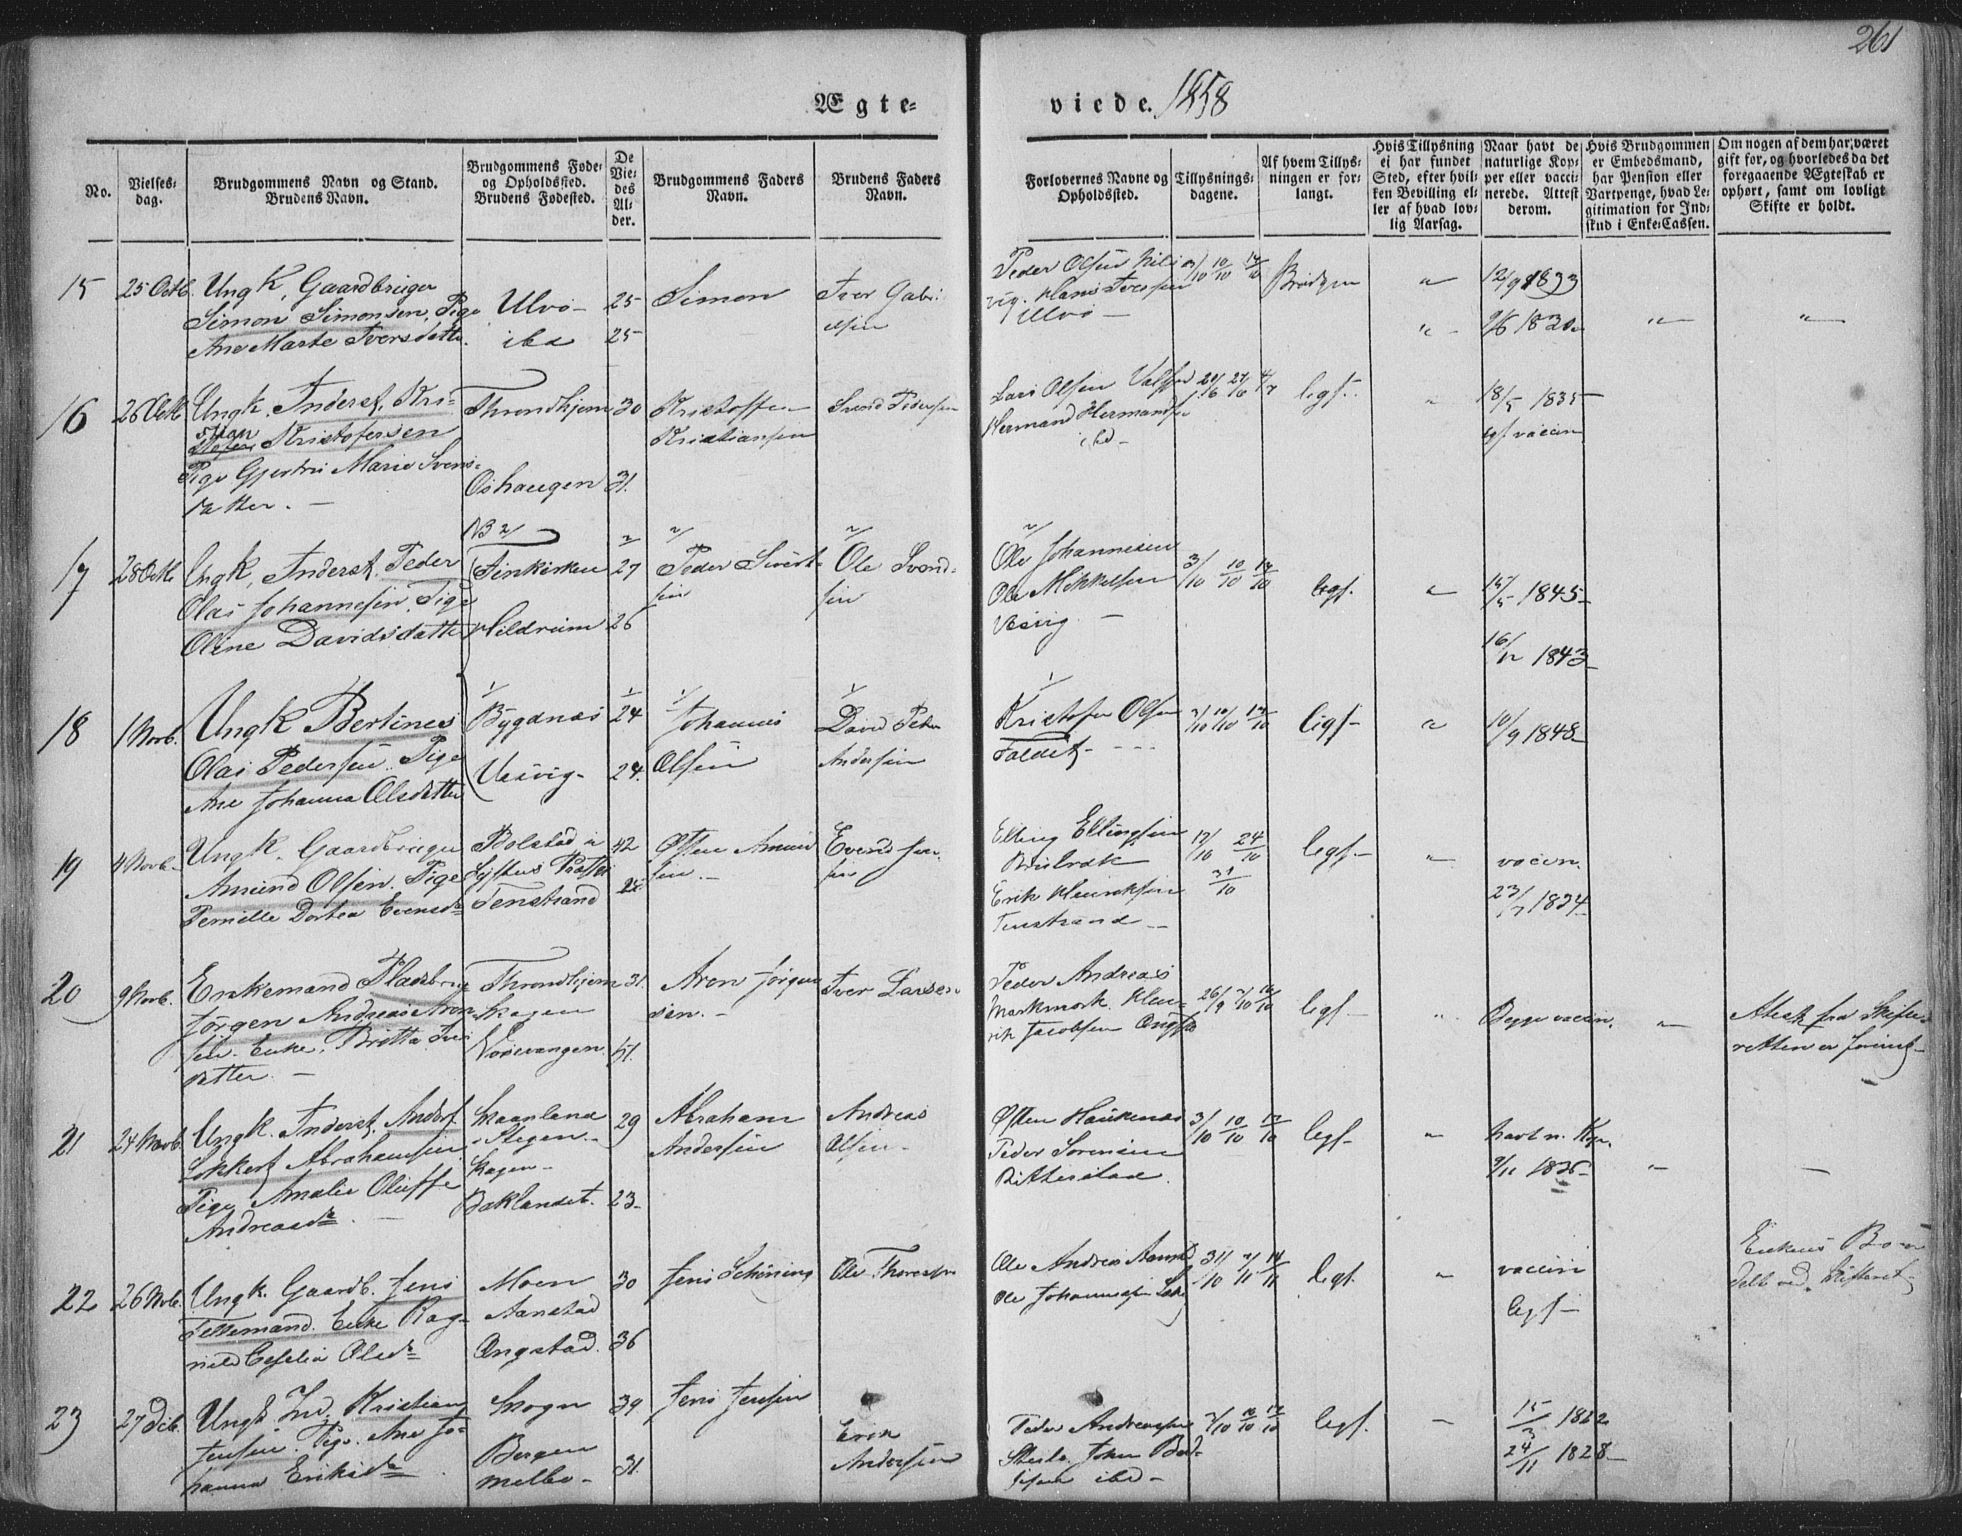 261
Ægte=
viede. 1858
No.
Vielses=
dag.
Brudgommens Navn og Stand.
Brudens Navn.
Brudgommens Føde=
og Opholdssted.
Brudens Fødested.
De
Vie=
des
Al=
der.
Brudgommens Faders
Navn.
Brudens Faders
Navn.
Forlovernes Navne og
Opholdssted.
Tillysnings=
dagene.
Af hvem Tillys=
ningen er for=
langt.
Hvis Tillysning
ei har fundet
Sted, efter hvil=
ken Bevilling el=
ler af hvad lov=
lig Aarsag.
Naar havt de
naturlige Kop=
per eller vacci=
nerede. Attest
derom.
Hvis Brudgommen
er Embedsmand,
har Pension eller
Vartpenge, hvad Le=
gitimation for Ind=
skud i Enke=Cassen.
Om nogen af dem har været
gift for, og hvorledes da det
foregaaende Ægteskab er
ophørt, samt om lovligt
Skifte er holdt.
15
25 Octb.
Ungk, Gaardbruger
Simon Simonsen, Pige
Ane Marte Iversdatter.
Ulvø
ibd
25
25
Simon
Iver Gabri
elsen
Peder Olsen
Ulvø
3/10 10/10 17/10
Brudgm
"
12/9 1833
"
2/6 1830
"
"
16
26 Octb
Ungk. Inderst, Kri=
stian
Kristofersen
Pige Gjertru Marie Svens=
datter.
Throndhjem
Oshaugen
30
31.
Kristoffer
Kristiansen
Svend Pedersen
Lars Olsen
Hermand Hermandsen
ibd
20/6 27/6 4/7
ligs.
"
18/5 1835
ligs vaccin
17
28 Octb
Ungk, Inderst, Peder
Olai Johannesen, Pige
Oline Davidsdatter
NB 2/
Finkirken
Hildreim
2
27
26
2/
Peder Sivert=
sen
2/
Ole Svend=
sen
2/
Ole Johannesen
Ole Mikkelsen
Vesvig
3/10 10/10 17/10
ligs.
"
15/5 1845
16/12 1843
18
1 Novb.
Ungk Bertines
Olai Pedersen. Pige
Ane Johanna Olsdatter
1/
Bygdnæs
Vesvig
1
24
24.
1/
Johannes
Olsen
1/
David Peder
Andersen
1/
Kristofer Olsen
Faldet
3/10 10/10 17/10
ligs
"
10/9 1848
19
4 Novb.
Ungk. Gaardbruger
Amund Olsen. Pige
Pernille Dortea Evensdr
Bolstad i
Tenstrand
42
Osten Amund
sen.
Evend Jen
sen
Elling Ellingsen
Erik Henriksen
Tenstrand
17/10 24/10
31/10
ligs
"
vaccin.
23/7 1834
20
9 Novb.
Enkemand Pladsbrug
Jørgen Andreas Aron
sen. Enke, Britta Ivers
datter.
Throndhjem
Skagen
31.
51.
Aron Jørgen
sen.
Iver Larsen
Peder Andreas
Markmork Hen=
rik Jacobsen
26/9 3/10 10/10
ligs
"
Begge vaccin.
"
Attest fra Skifte=
retten er
21
24 Novb.
Ungk. Inderst, Andors
Lokkert Abrahamsen
Pige Amalie Oluffe
Andreasdr
Skaanland
i Stegen.
Skagen
Baklandet.
29
23
Abraham
Andersen
Andreas
Olsen
Østen Haukenæs
Peder Sorensen
Rittersted
3/10 10/10 17/10
ligs
"
havt n. Kop.
9/11 1836
"
22
26 Novb.
Ungk. Gaardb. Jens
Tettemand. Enke Rag=
nild Cesilia Olsdr
Moen
Aanstad
Ongstad.
30
36
Jens Schøning
Ole Thoresen
Ole Andreas Aanstad
Ole Johannesen
31/10 7/11 14/11
ligs.
"
vaccin
ligs
Enkens Bo er
delt ved Skifteret
23
27 Deb.
Ungk Ind. Kristian
Jensen. Pige Ane Jo=
hanna Eriksdr
Skogn
Bergen
Melbo
39
31.
Jens Jensen
Erik
Andersen
Peder Andreassen
ibd
3/10 10/10 17/10
ligs.
15/3 1822
24/11 1828